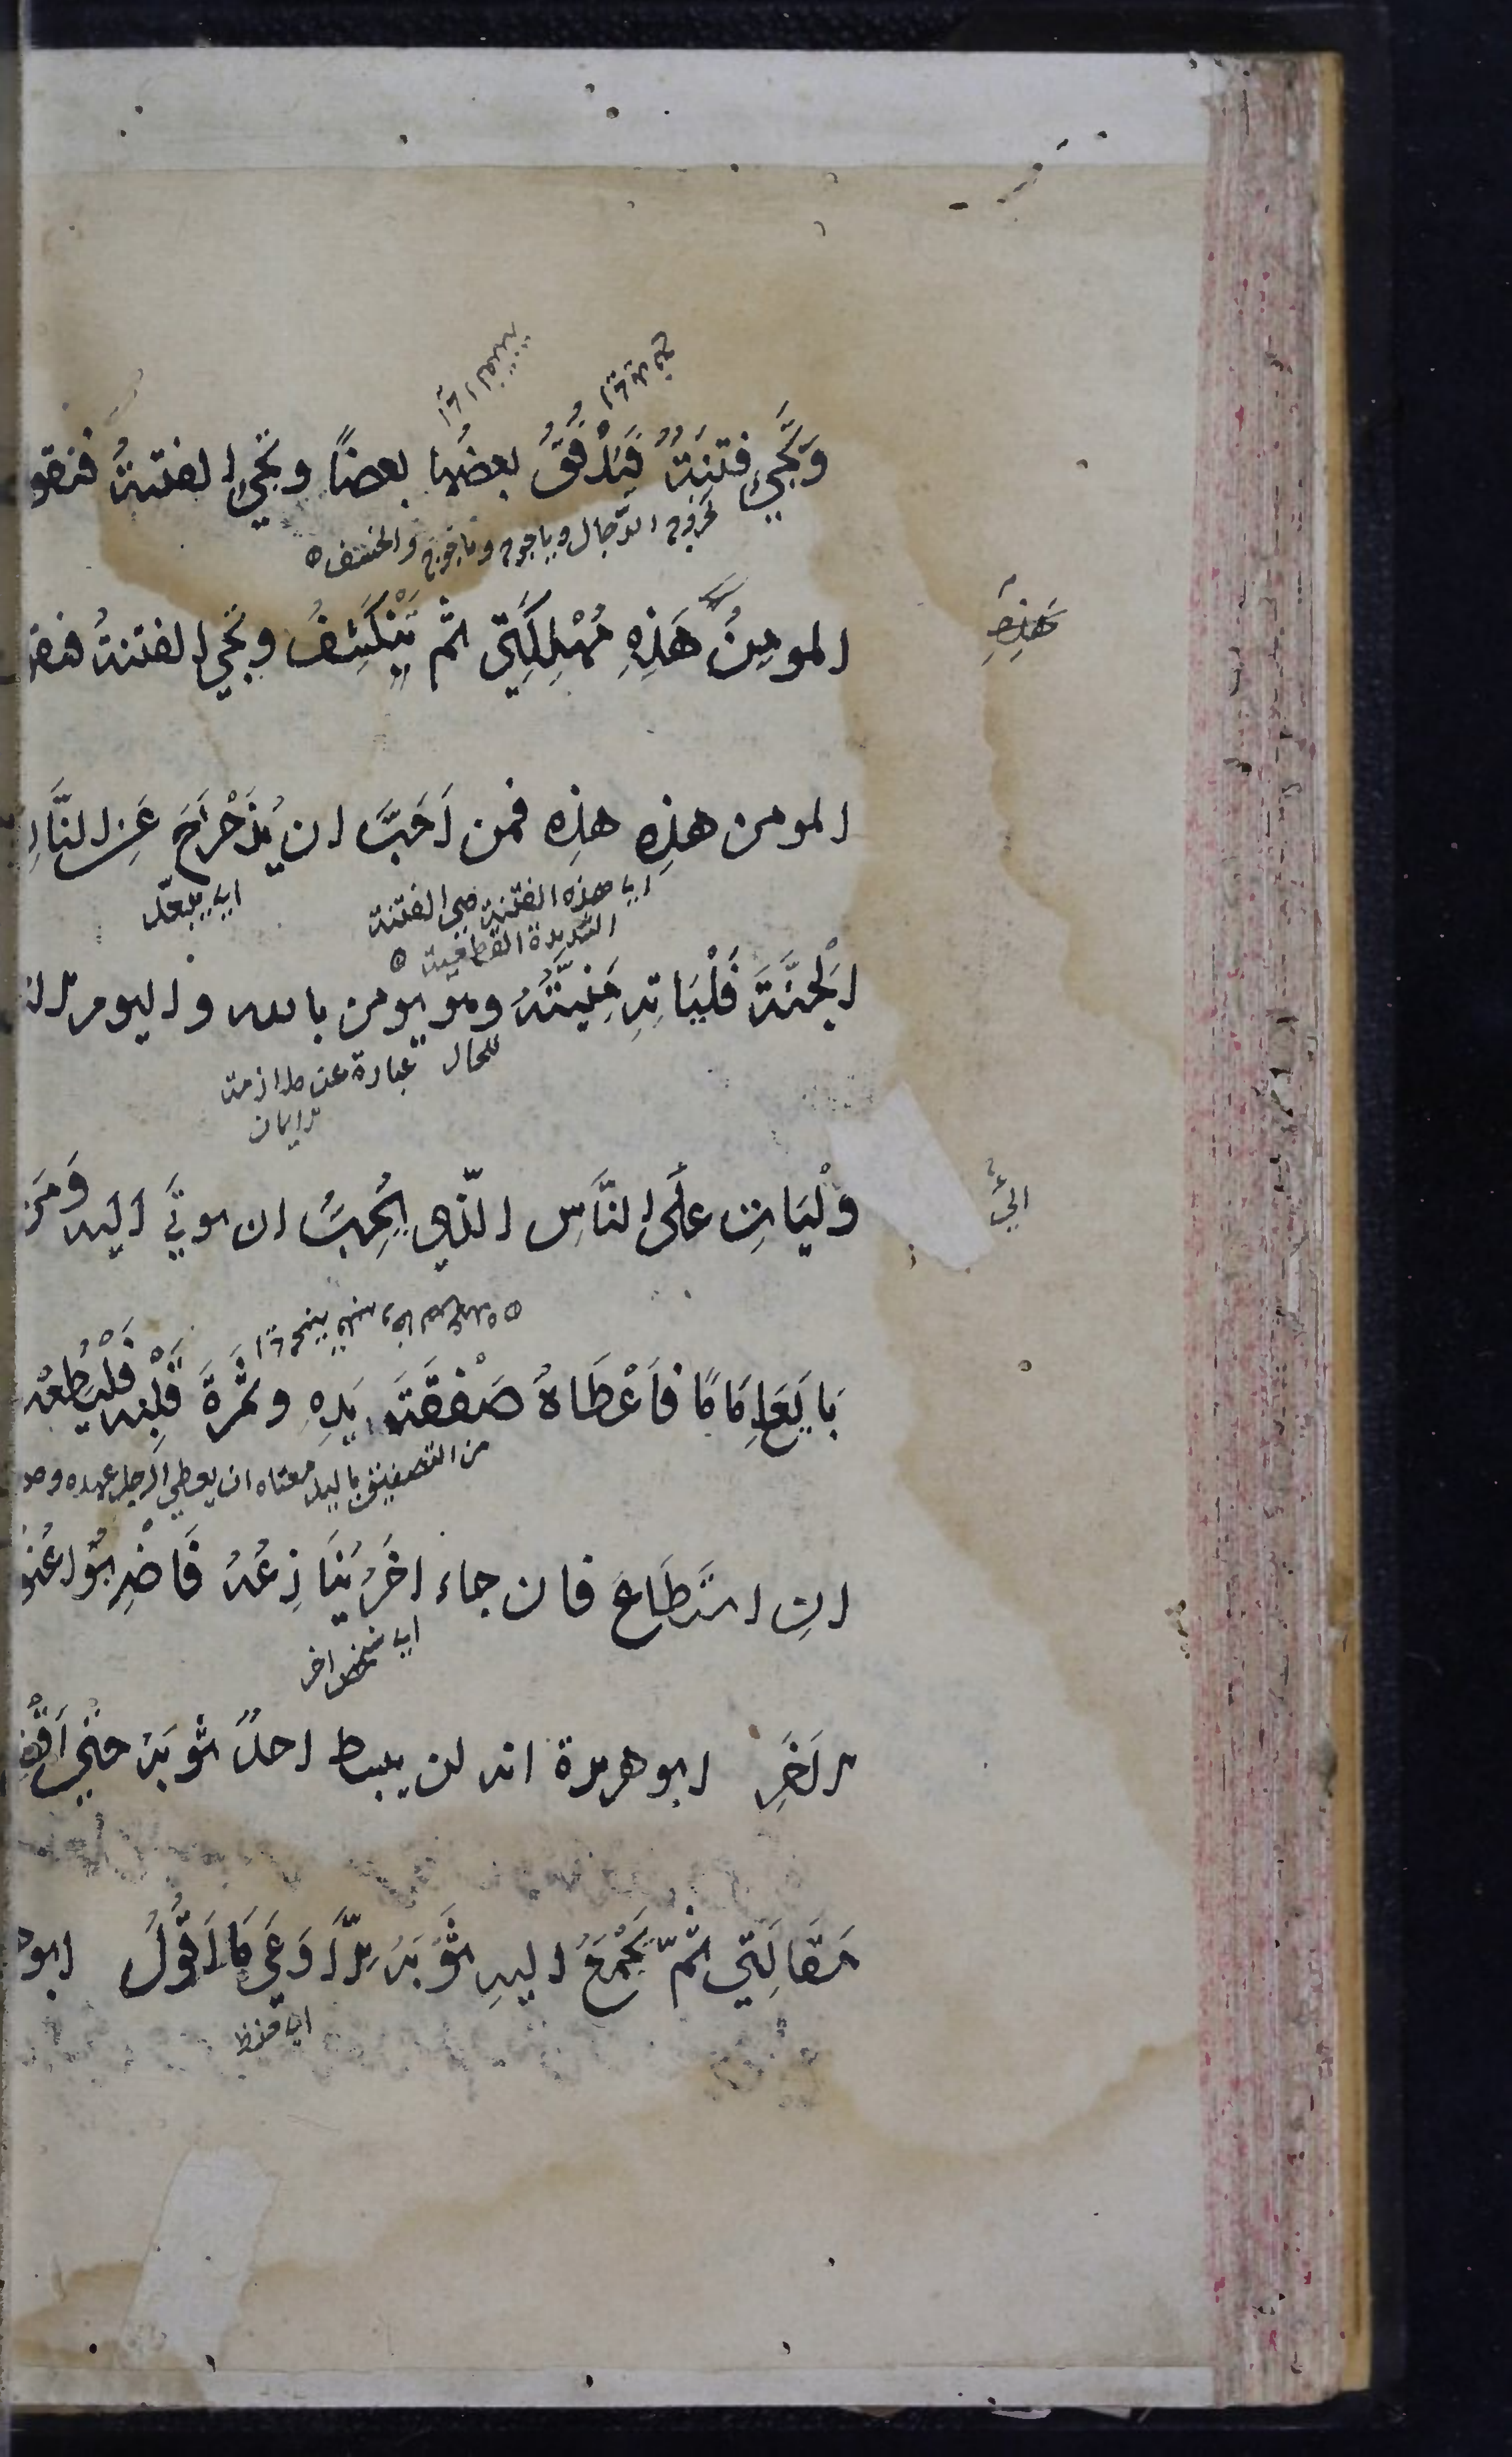 وَتَجِيُ فتنَةٌ فَيَدْفُقُ بعضُها بعضاً وتجيُ الفتنةُ فيقو
لخروج الدّجال وياجوج وماجوج والخسف
هَذِهِ
المومِنُ هَذِهِ مُهْلِكَتِي ثم يَنْكَشِفُ وتجي الفتنةُ فيقو
المومن هذِه هذِه فمن اَحَبَّ ان يُزَحْزَحَ عَنِ النَّارِ
اي هذه الفتنة هي الفتنة
الشديدة القطعية
اي يبعد
الْجنَّةَ فَلْيَاتِهِ مَنِيَّتُهُ وهو يومن بالله واليوم الا
للحال عبارة عن ملازمة
الايمان
الي
وَلْيَاتِ علَى النَّاسِ الّذِي يُحِبُّ ان يوتَي اليه وَمَن
بَايَعَ اِمَامًا فاَعْطَاهُ صَفْقَةَ يَدِهِ وثمرةَ قَلْبِه فَلْيُطِعْه
من التصفيق باليد معناه ان يعطي الرجل عهده و
انِ استَطَاعَ فان جاء اخَرُ يُنَازِعُهُ فَاضْرِبُوا عُنُوَ
اي شخص اخر
الاخَرِ ابو هريرة انه لن يبسط احدٌ ثوبَهُ حتّي اَقْضِي
مَقَالَتِي ثمّ يَجْمَعُ اليهِ ثَوْبَهُ اِلَّا وَعَي مَا اَقُولُ ابوه
اي حفظ